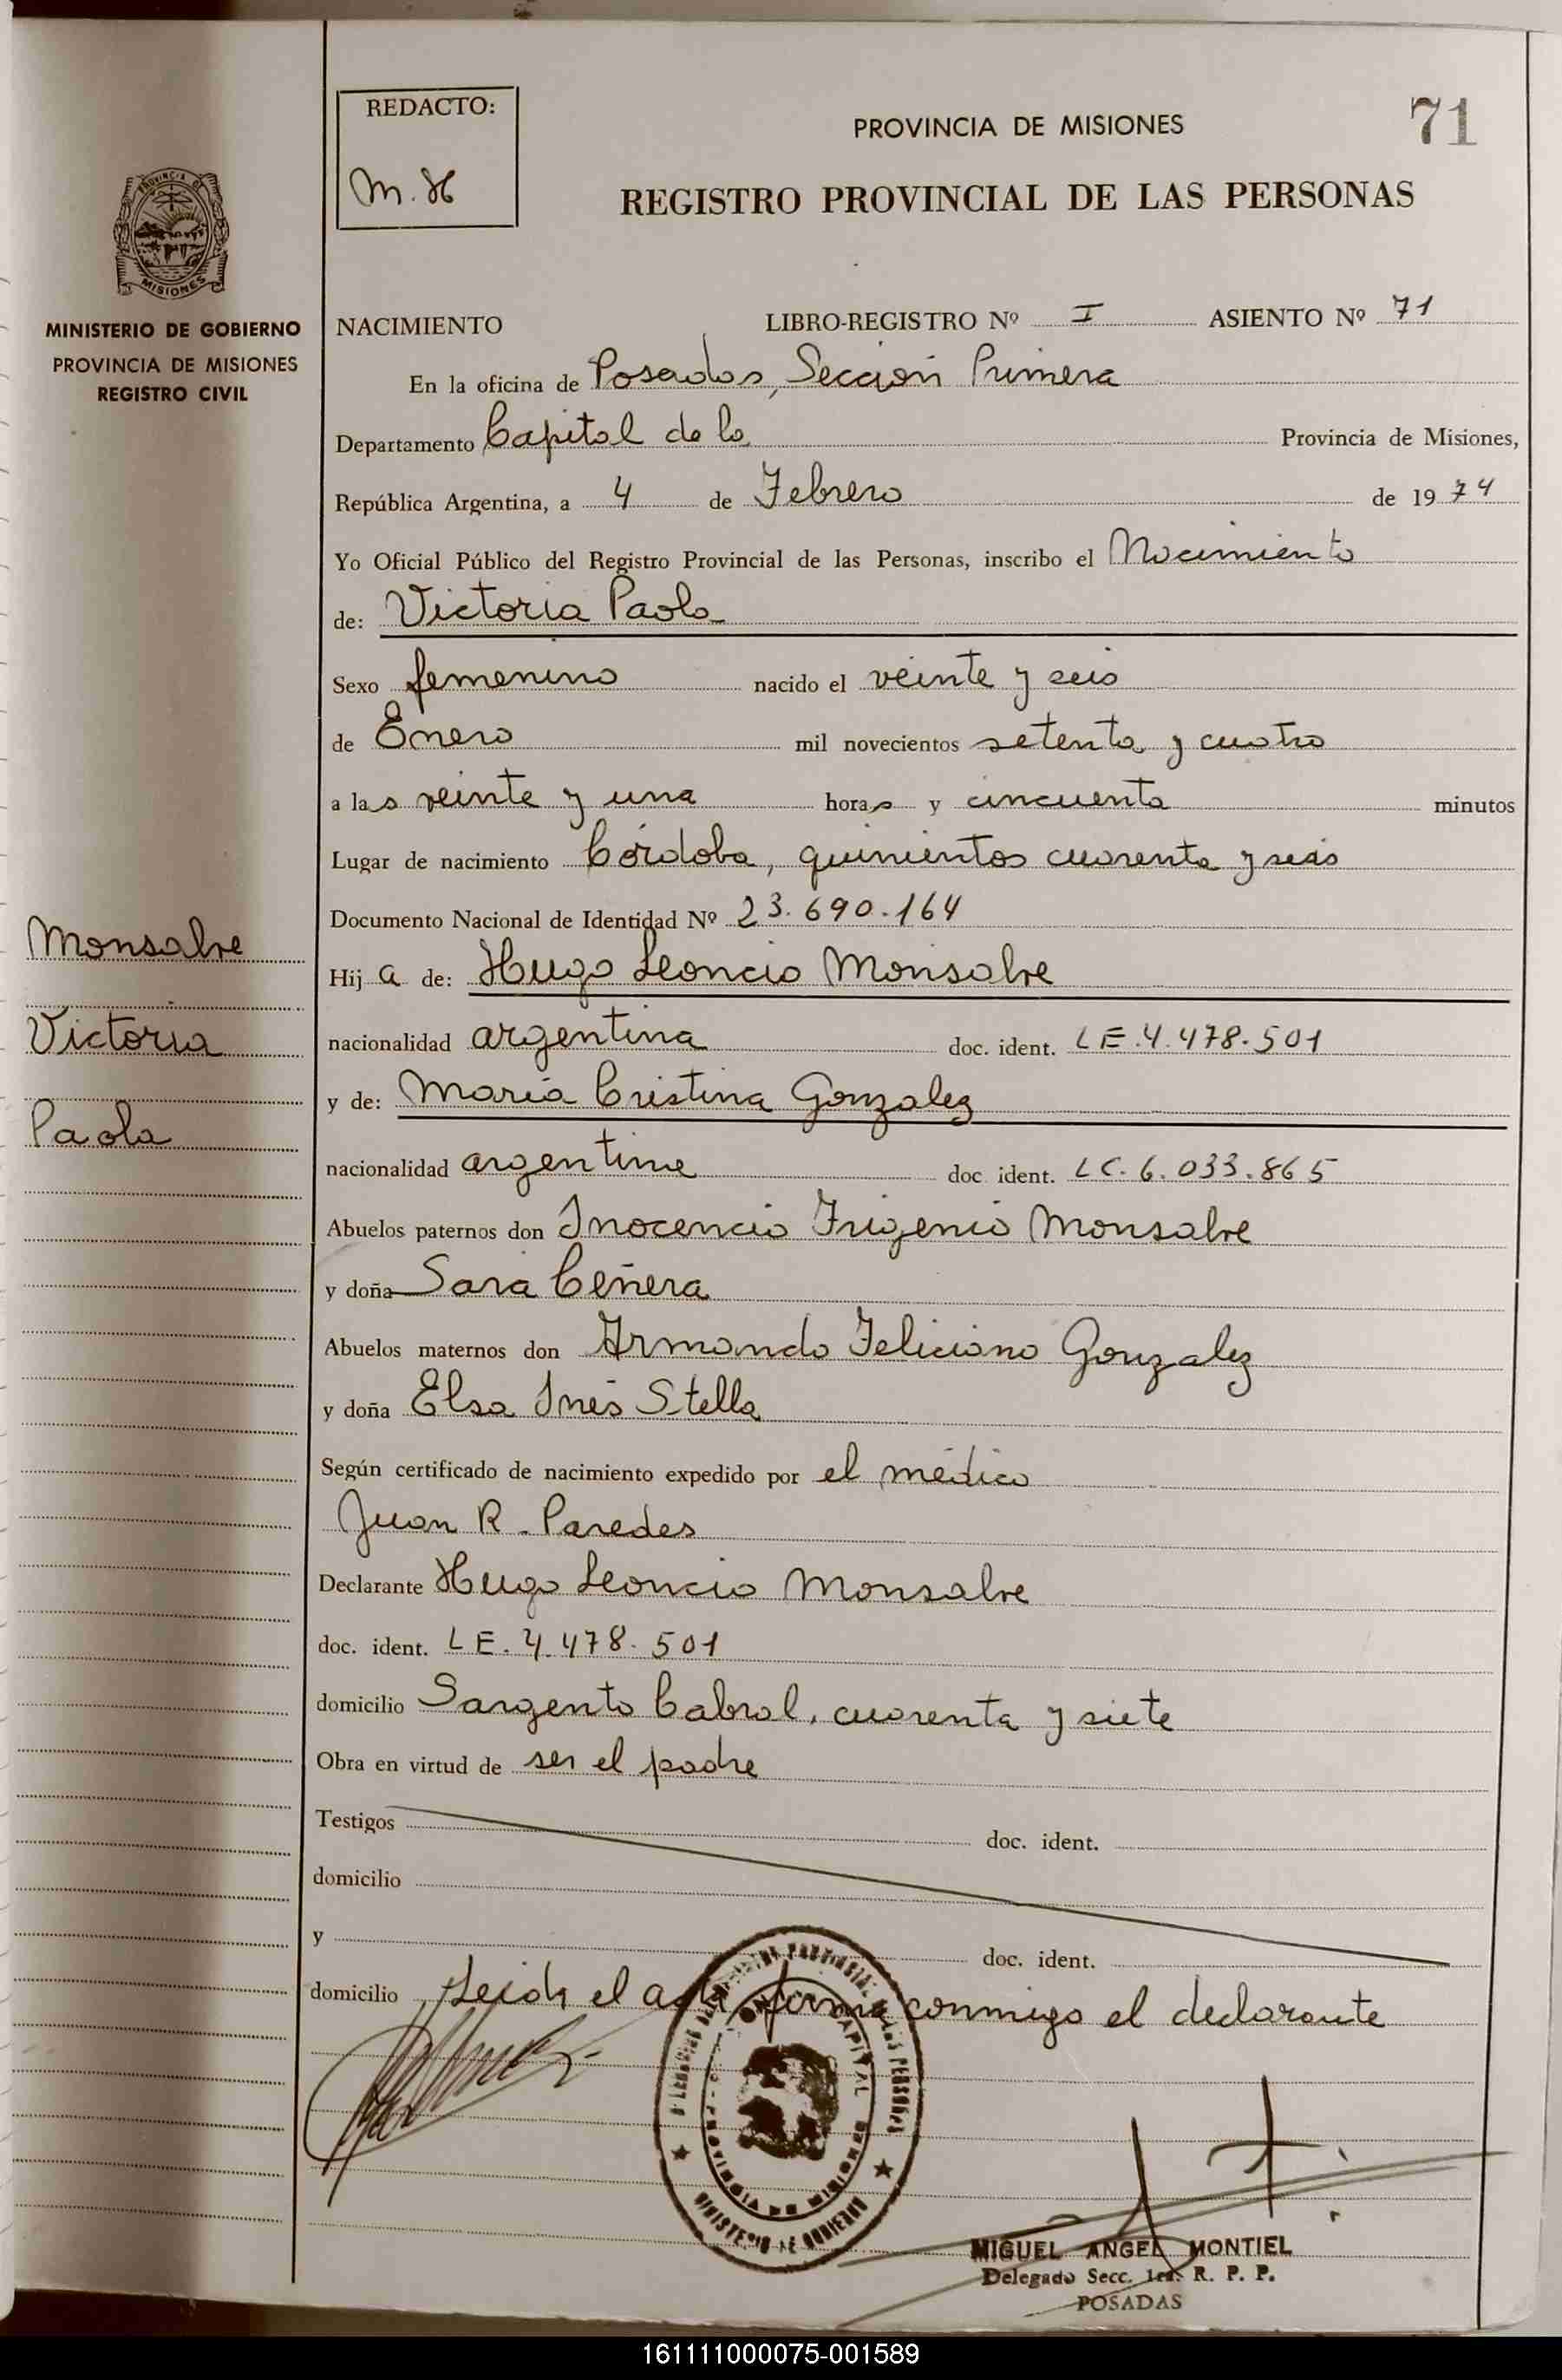 71
REDACTO:
M. H
PROVINCIA DE MISIONES
REGISTRO PROVINCIAL DE LAS PERSONAS
PROVINCIA DE
MISIONES
MINISTERIO DE GOBIERNO
PROVINCIA DE MISIONES
REGISTRO CIVIL
NACIMIENTO LIBRO-REGISTRO Nº I ASIENTO Nº 71
En la oficina de Posadas, Sección Primera
Departamento Capital de la Provincia de Misiones,
República Argentina, a 4 de Febrero de 1974
Yo Oficial Público del Registro Provincial de las Personas, inscribo el Nacimiento
de: Victoria Paola
Sexo femenino nacido el veinte y seis
de Enero mil novecientos setenta y cuatro
a las veinte y una horas y cincuenta minutos
Lugar de nacimiento Córdoba, quinientos cuarenta y seis
Documento Nacional de Identidad Nº 23.690.164
Hija de: Hugo Leoncio Monsalve
nacionalidad argentina doc. ident. LE.4.478.501
y de: María Cristina Gonzalez
nacionalidad argentina doc. ident. LC.6.033.865
Abuelos paternos don Inocencio Frigenio Monsalve
y doña Sara Ceñera
Abuelos maternos don Armando Feliciano Gonzalez
y doña Elsa Inés Stella
Según certificado de nacimiento expedido por el médico
Juan R. Paredes
Declarante Hugo Leoncio Monsalve
doc. ident. LE.4.478.501
domicilio Sargento Cabral, cuarenta y siete
Obra en virtud de ser el padre
Testigos doc. ident.
domicilio
y doc. ident.
domicilio Leida el acta, firma conmigo el declarante
Monsalve
Victoria
Paola
MINISTERIO DE GOBIERNO
PROVINCIA DE MISIONES
MIGUEL ANGEL MONTIEL
Delegado Secc. 1ra. R. P. P.
POSADAS
161111000075-001589